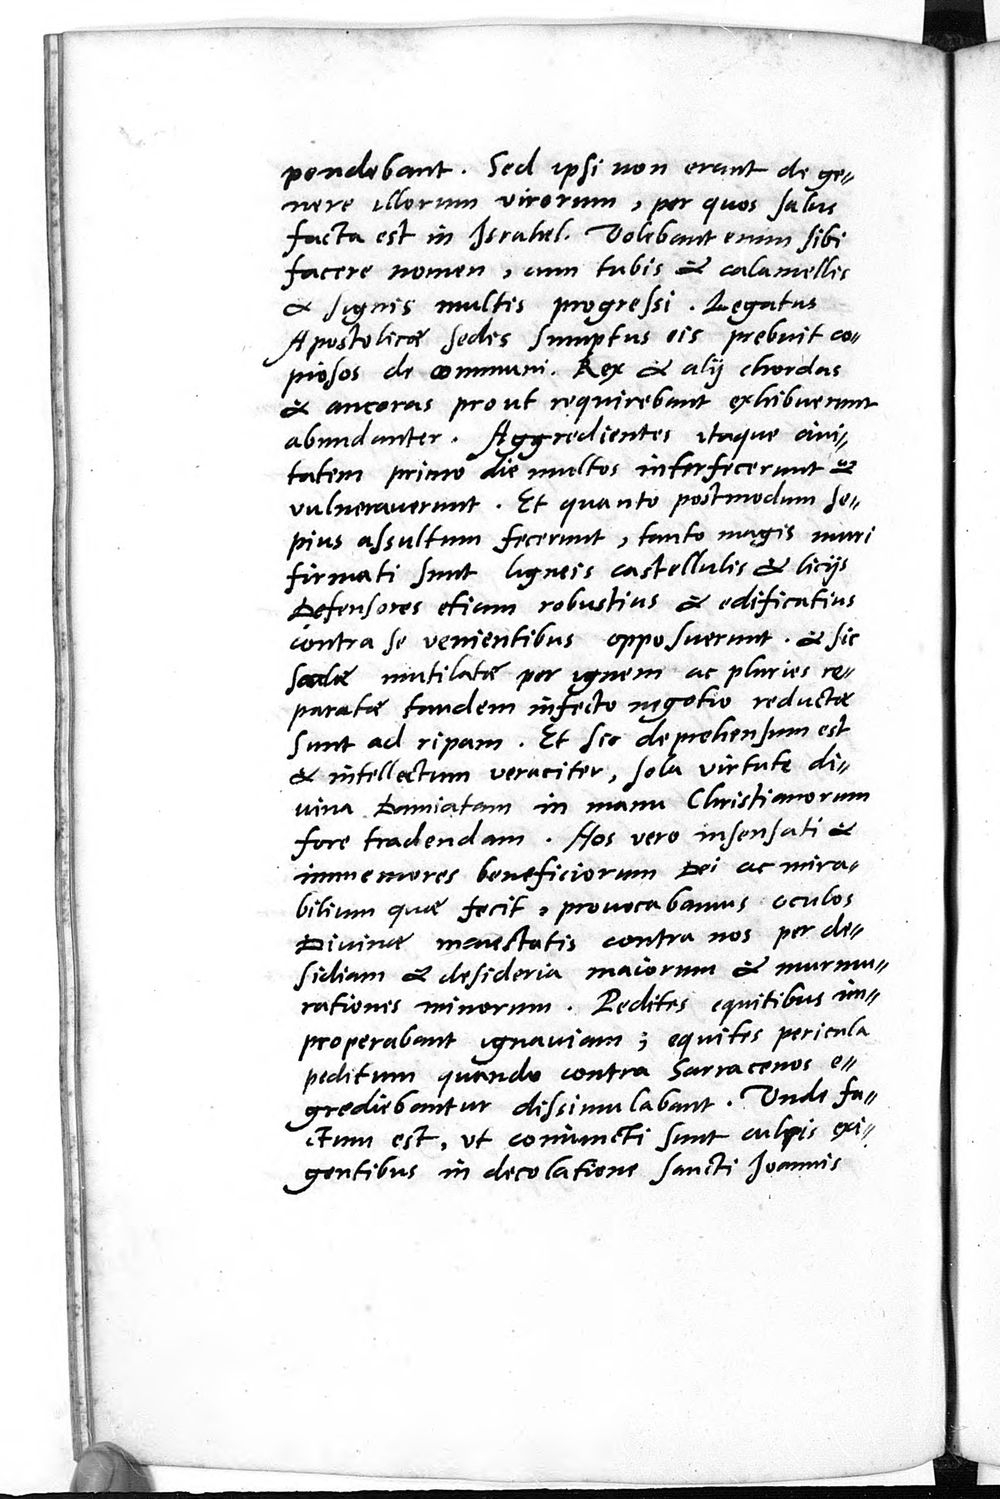 pendebant. Sed ipsi non erant de ge=
nere illorum virorum, per quos salus
facta est in Israhel. Volebant enim sibi
facere nomen, cum tubis & calamellis
& signis multis progressi. Legatus
Apostolicæ sedis sumptus eis prebuit co=
piosos de communi. Rex & alij chordas
& ancoras prout requirebant exhibuerunt
abundanter. Aggredientes itaque civi=
tatem primo die multos interfecerunt &
vulneraverunt. Et quanto postmodum se=
pius assultum fecerunt, tanto magis muri
firmati sunt ligneis castellulis & licijs
Defensores etiam robustius & edificatius
contra se venientibus opposuerunt. & sic
scalæ mutilatæ per ignem ac pluries re=
paratæ tandem infecto negotio reductæ
sunt ad ripam. Et sic deprehensum est
& intellectum veraciter, sola virtute di=
vina Damiatam in manu Christianorum
fore tradendam. Nos vero insensati &
immemores beneficiorum Dei ac mira=
bilium quæ fecit, provocabamus oculos
Divinæ maiestatis contra nos per de=
sidiam & desideria maiorum & murmu=
rationes minorum. Pedites equitibus im=
properabant ignaviam; equites pericula
peditum quando contra Sarracenos e=
grediebantur dissimulabant. Unde fa=
ctum est, ut coniuncti sunt culpis exi=
gentibus in decolatione sancti Joannis